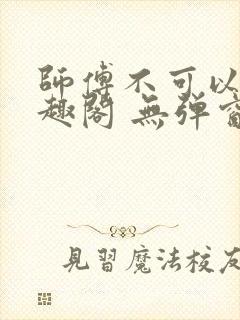 師傅不可以
趣閣 無彈窗
見習魔法校友